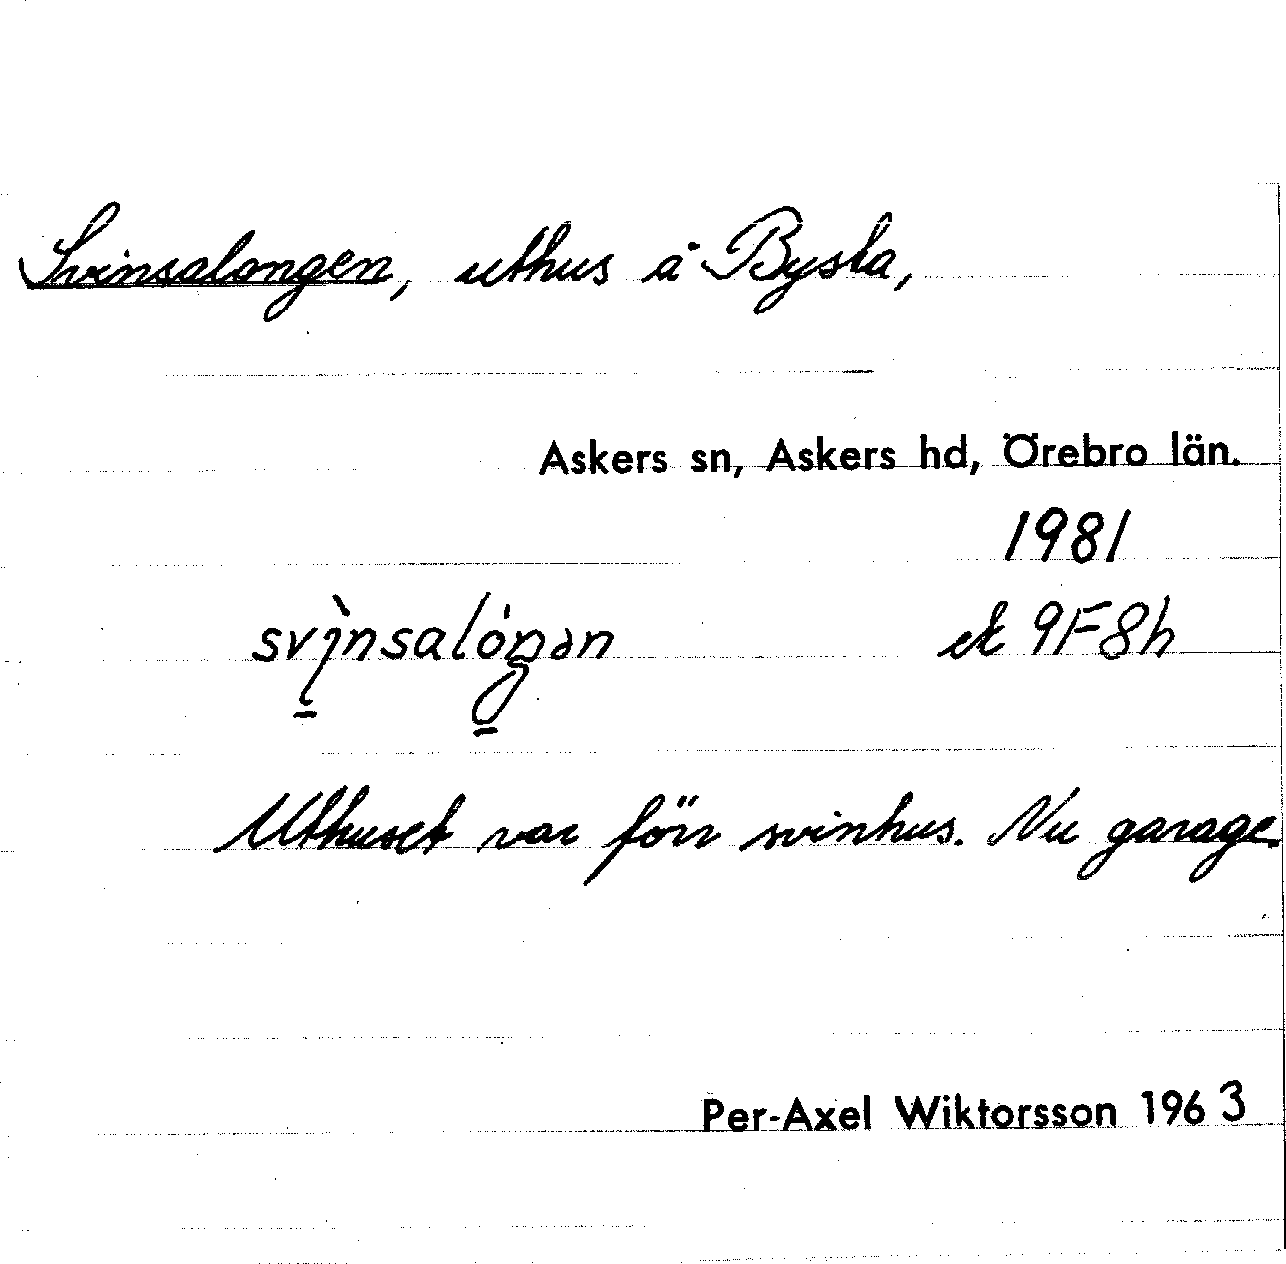 Svinsalongen, uthus å Bysta,
Askers sn, Askers hd, Örebro län.
1981
ek 9F8h
Uthuset var förr svinhus. Nu garage.
Per-Axel Wiktorsson 1963